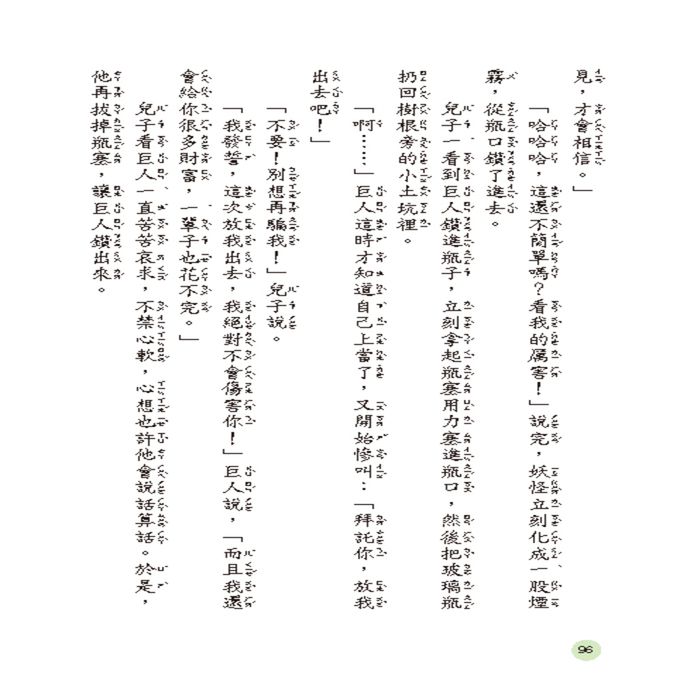 見，才會相信。」
「哈哈哈，這還不簡單嗎？看我的厲害！」說完，妖怪立刻化成一股煙
霧，從瓶口鑽了進去。
兒子一看到巨人鑽進瓶子，立刻拿起瓶塞用力塞進瓶口，然後把玻璃瓶
扔回樹根旁的小土坑裡。
「啊……」巨人這時才知道自己上當了，又開始慘叫：「拜託你，放我
出去吧！」
「不要！別想再騙我！」兒子說。
「我發誓，這次放我出去，我絕對不會傷害你！」巨人說，「而且我還
會給你很多財富，一輩子也花不完。」
兒子看巨人一直苦苦哀求，不禁心軟，心想也許他會說話算話。於是，
他再拔掉瓶塞，讓巨人鑽出來。
96